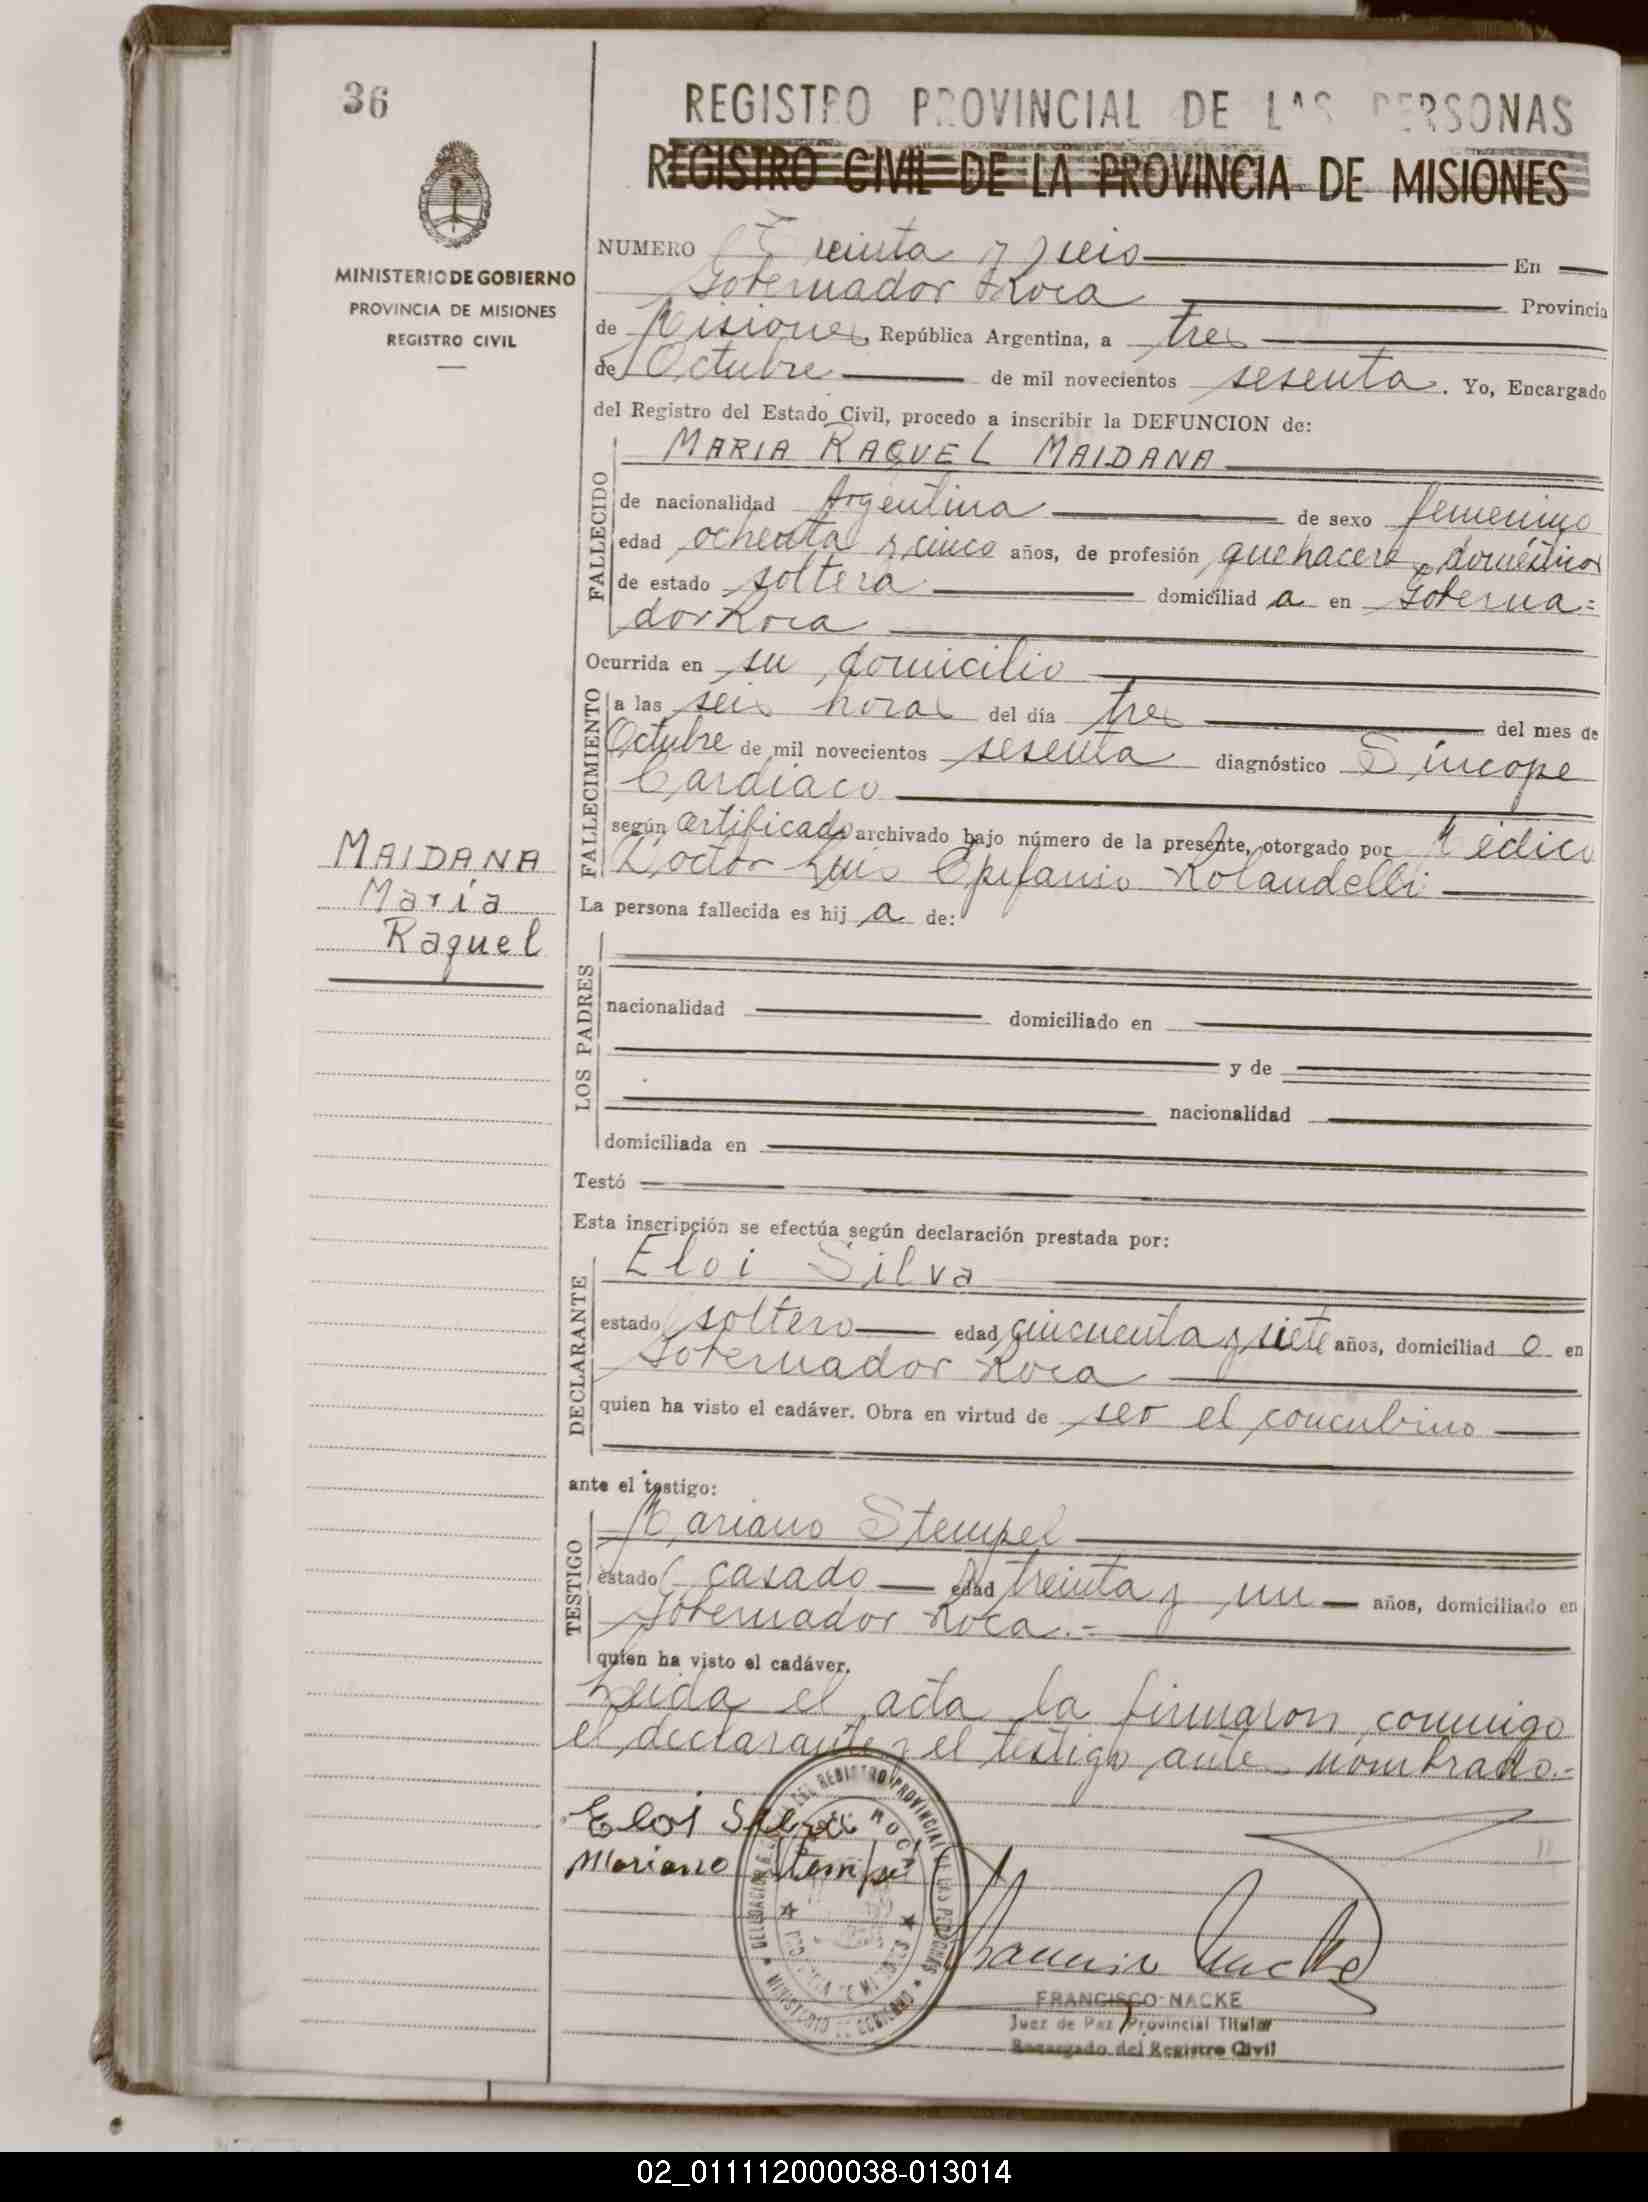 36
MINISTERIO DE GOBIERNO
PROVINCIA DE MISIONES
REGISTRO CIVIL
MAIDANA
María
Raquel
REGISTRO PROVINCIAL DE LAS PERSONAS
REGISTRO CIVIL DE LA PROVINCIA DE MISIONES
NUMERO Treinta y seis En
Gobernador Roca Provincia
de Misiones, República Argentina, a tres
de Octubre de mil novecientos sesenta. Yo, Encargado
del Registro del Estado Civil, procedo a inscribir la DEFUNCION de:
FALLECIDO
MARIA RAQUEL MAIDANA
de nacionalidad Argentina de sexo femenino
edad ochenta y cinco años, de profesión quehaceres domésticos
de estado soltera domiciliad a en Goberna=
dor Roca
Ocurrida en su domicilio
FALLECIMIENTO
a las seis horas del día tres del mes de
Octubre de mil novecientos sesenta diagnóstico Síncope
Cardiaco
según certificado archivado bajo número de la presente, otorgado por Médico
Doctor Luis Epifanio Rolandelli
La persona fallecida es hij a de:
LOS PADRES
nacionalidad domiciliado en
y de
nacionalidad
domiciliada en
Testó
Esta inscripción se efectúa según declaración prestada por:
DECLARANTE
Eloi Silva
estado soltero edad cincuenta y siete años, domiciliad o en
Gobernador Roca
quien ha visto el cadáver. Obra en virtud de ser el concubino
ante el testigo:
TESTIGO
Mariano Stempel
estado casado edad treinta y un años, domiciliado en
Gobernador Roca.-
quien ha visto el cadáver.
Leida el acta la firmaron conmigo
el declarante y el testigo ante nombrado.-
Eloi Silva
Mariano Stempel
DEL REGISTRO PROVINCIAL DE LAS PERSONAS
ROCA
PROVINCIA DE MISIONES
MINISTERIO DE GOBIERNO
Francisco Nacke
FRANCISCO NACKE
Juez de Paz Provincial Titular
Encargado del Registro Civil
02_011112000038-013014